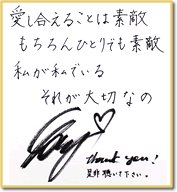 愛し合えることは素敵
もちろんひとりでも素敵
私が私でいる
それが大切なの
thank you!
是非聴いて下さい。